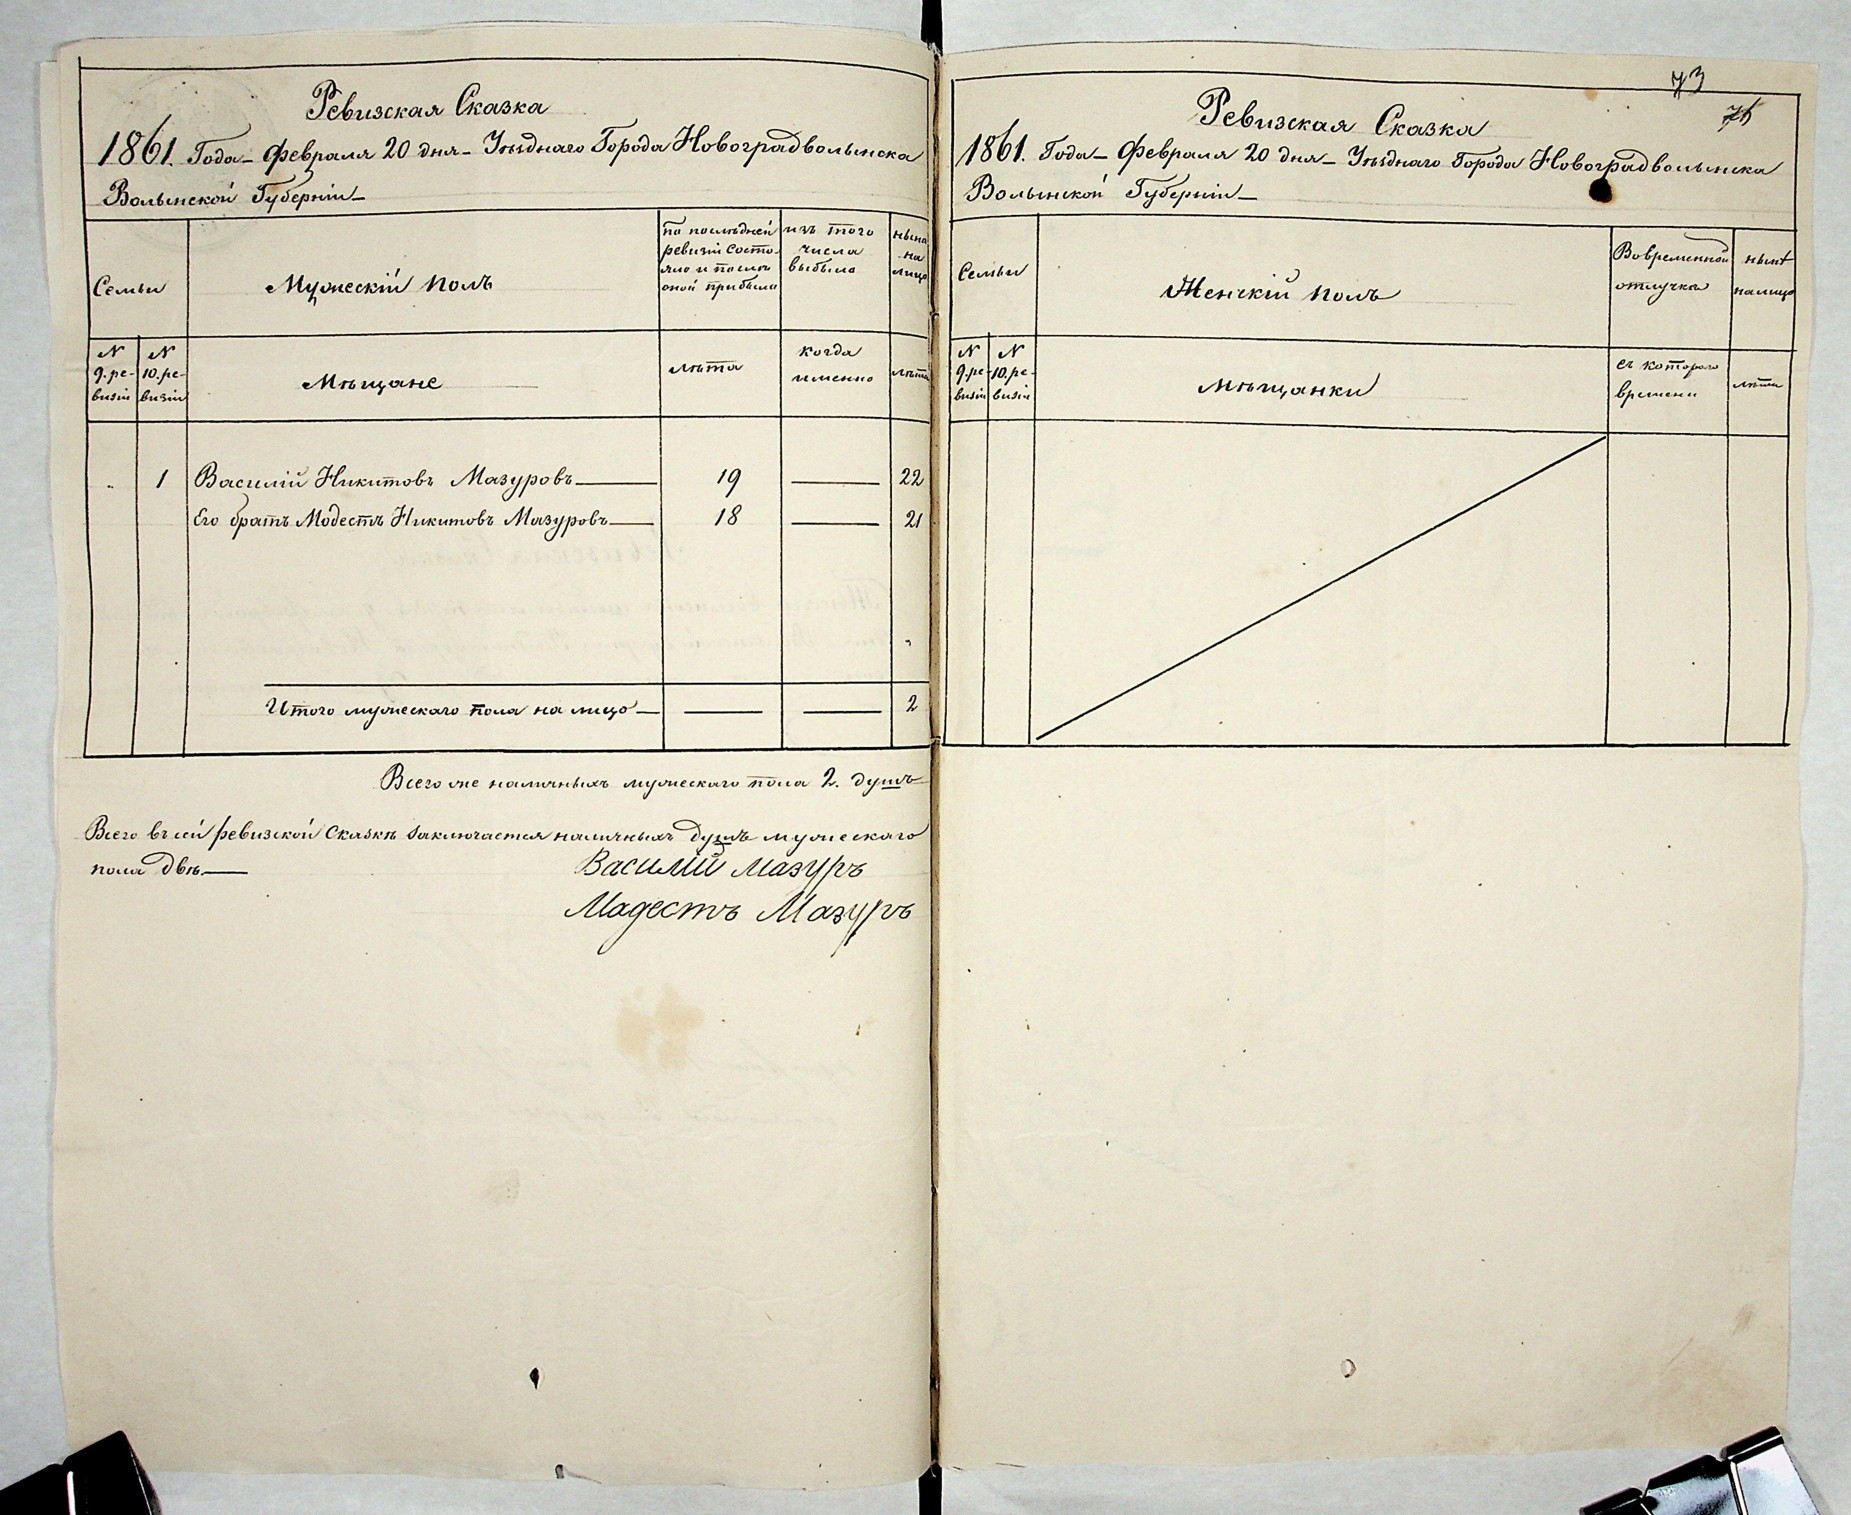 Ревизская Сказка
1861. Года – Февраля 20 дня – Уѣзднаго Города Новоградволынска
Волынской Губерніи –
Семьи
Мужескій полъ
по послѣдней
ревизіи состо-
яло и послѣ
оной прибыло
изъ того
числа
выбыло
нынѣ
на
лицо
N
9. ре-
визіи
N
10. ре-
визіи
Мѣщане
лѣта
когда
именно
лѣта
1 Василій Никитовъ Мазуровъ — 19 — 22
Его братъ Модестъ Никитовъ Мазуровъ — 18 — 21
Итого мужескаго пола на лицо — — — 2
Всего же наличныхъ мужескаго пола 2. душъ
Всего въ сей ревизской Сказкѣ заключается наличныхъ душъ мужескаго
пола двѣ. —
Василій Мазуръ
Мадестъ Мазуръ
73
Ревизская Сказка
1861. Года – Февраля 20 дня – Уѣзднаго Города Новоградволынска
Волынской Губерніи –
Семьи
Женскій полъ
Во временной
отлучкѣ
нынѣ
на лицо
N
9. ре-
визіи
N
10. ре-
визіи
Мѣщанки
съ котораго
времени
лѣта